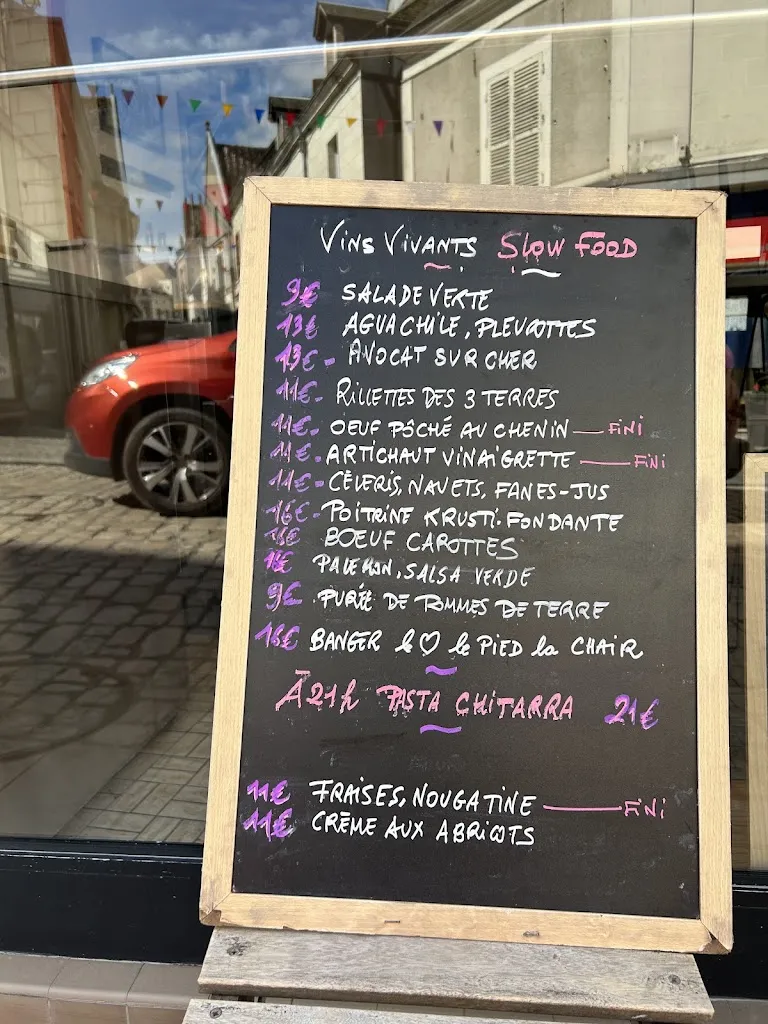 Vins Vivants Slow Food
9€ Salade verte
13€ Aguachile, pleurottes
13€ - Avocat sur Cher
11€ - Rillettes des 3 terres
11€ - Oeuf pôché au chenin — Fini
11€ - Artichaut vinaigrette — Fini
11€ - Cèleris, navets, fanes-jus
16€ - Poitrine Krusti-fondante
16€ Boeuf carottes
Paleron, salsa verde
9€ Purée de pommes de terre
16€ Banger le ♡ le pied la chair
À 21h Pasta chitarra 21€
11€ Fraises, nougatine — Fini
11€ Crème aux abricots